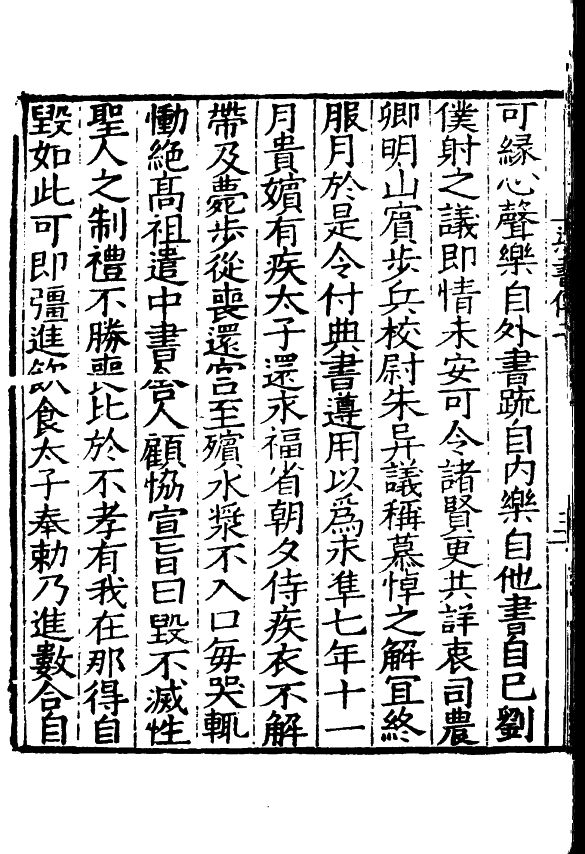 可緣心聲樂自外書䟽自内樂自他書自已劉
僕射之議即情未安可令諸賢更共詳衷司農
卿明山賓步兵校尉朱异議稱慕悼之解冝終
服月於是令付典書遵用以爲永準七年十一
月貴嬪有疾太子還永福省朝夕侍疾衣不解
帶及薨步從喪還宫至殯水漿不入口每哭輒
慟絶髙祖遣中書舍人顧恊宣旨曰毀不滅性
聖人之制禮不勝喪比於不孝有我在那得自
毀如此可即彊進飲食太子奉勅乃進數合自